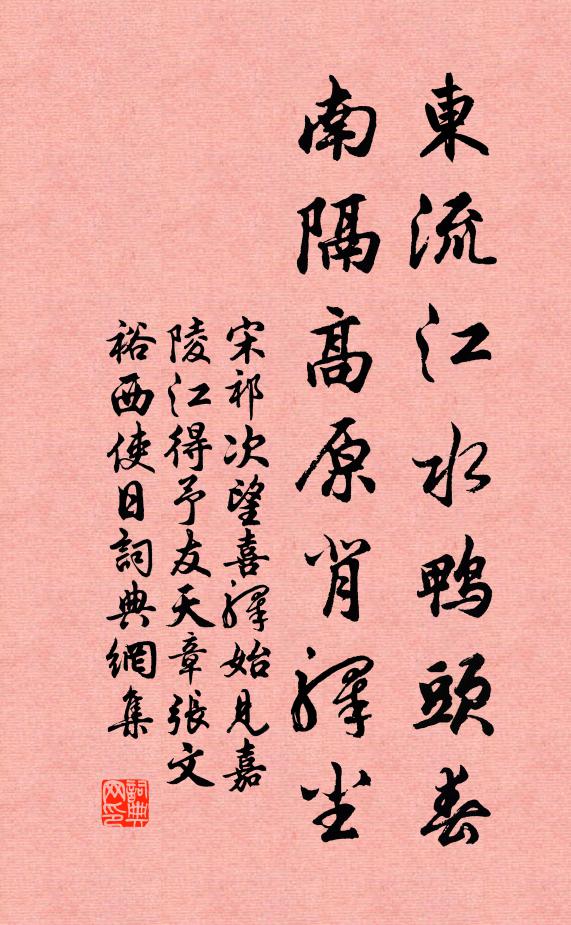 東流江水鴨頭春
南隔高原背驛尘
宋祁次望喜驛始見嘉
陵江得予友天章張文
裕西使日詞典網集
詞典
网印